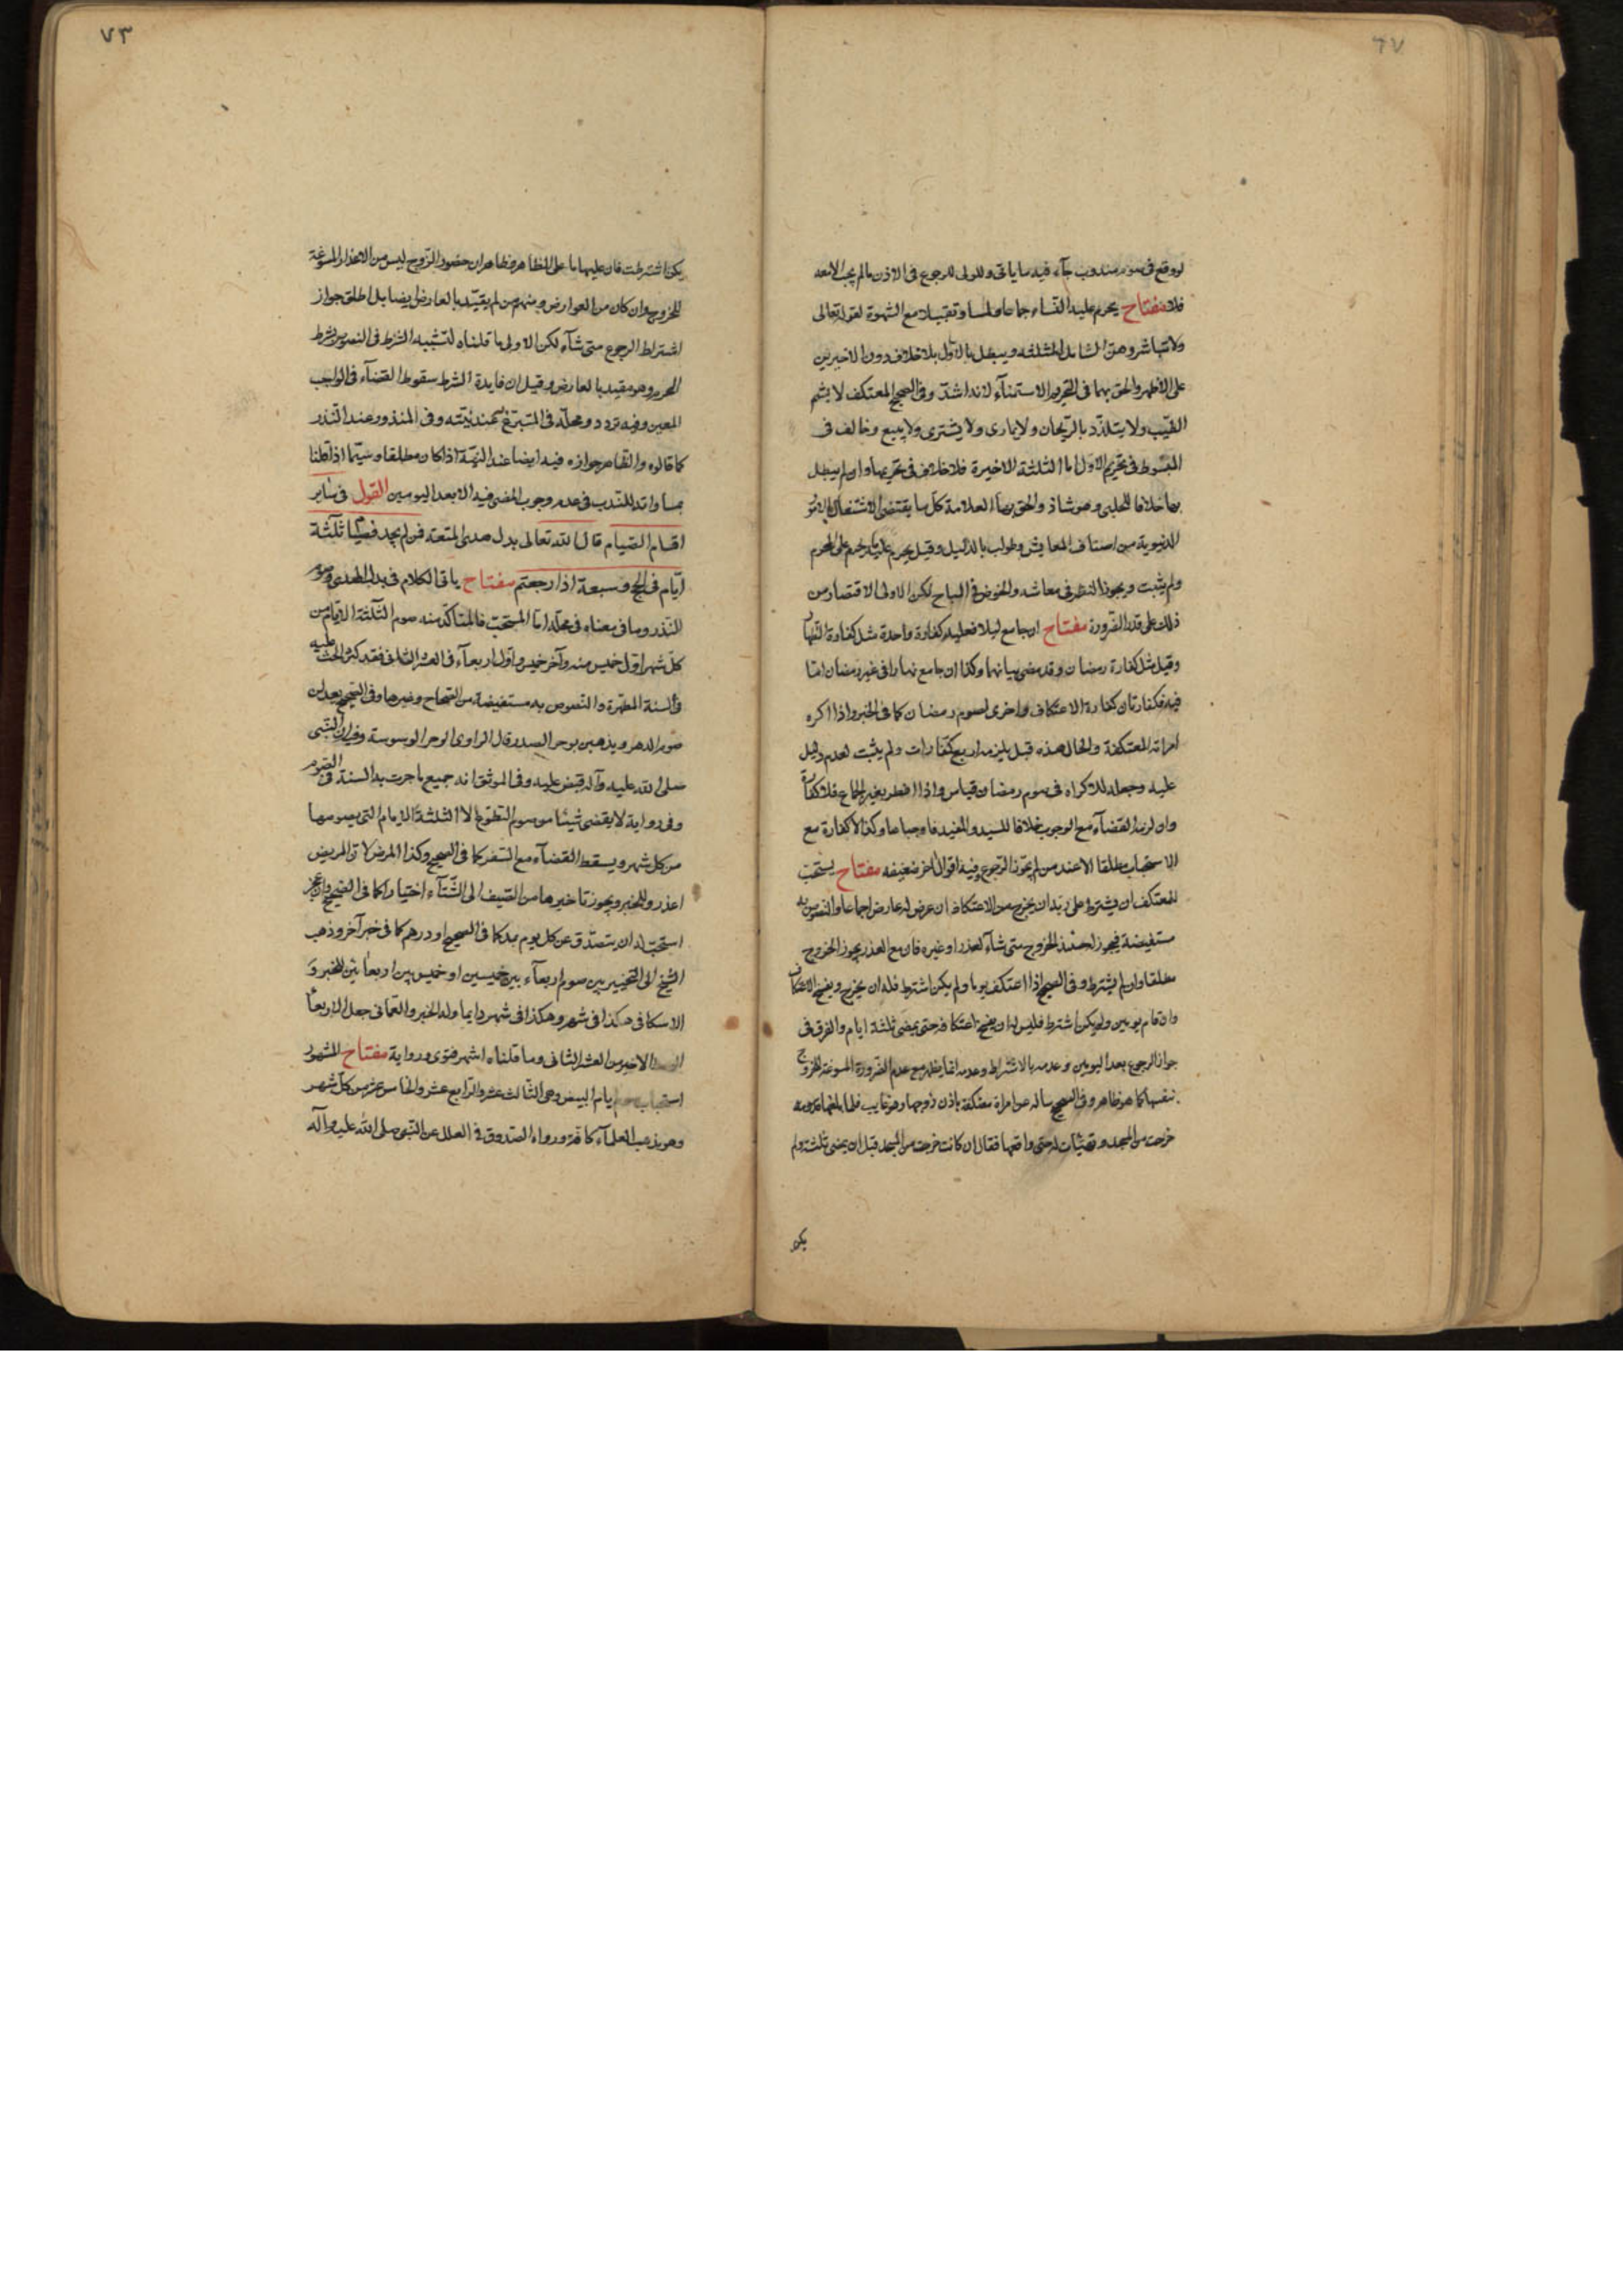 ٦٧
لو وقع فى صوم مندوب جآء فيه ما ياتى وللولى الرجوع فى الاذن ما لم يجب لا بعده
فلا مفتاح يحرم عليه النساء جماعا ولمسا وتقبيلا مع الشهوة لقوله تعالى
ولا تباشروهن الشامل للثلثه ويبطل بالاول بلا خلاف دون الاخيرين
على الاظهر والحق بهما فى التحريم الاستمنآء لانه اشد وفى الصحيح المعتكف لا يشم
الطيب ولا يتلذذ بالريحان ولا يمارى ولا يشترى ولا يبيع وخالف فى
المبسوط فى تحريم الاول اما الثلثة الاخيرة فلا خلاف فى تحريمها وان لم يبطل
بها خلافا للحلبى وهو شاذ والحق بها العلامة كل ما يقتضى الاشتغال بالامور
الدنيوية من اصناف المعايش وطولب بالدليل وقيل يحرم عليه ما يحرم على المحرم
ولم يثبت ويجوز النظر فى معاشه والخوض فى المباح لكن الاولى الاقتصار من
ذلك على قدر الضرورة مفتاح ان جامع ليلا فعليه كفارة واحدة مثل كفارة الظهار
وقيل مثل كفارة رمضان وقد مضى بيانهما وكذا ان جامع نهارا فى غير رمضان اما
فيه فكفارتان كفارة الاعتكاف واخرى لصوم رمضان كما فى الخبر واذا اكره
امراته المعتكفة والحال هذه قيل يلزمه اربع كفارات ولم يثبت لعدم دليل
عليه وجعله للاكراه فى صوم رمضان قياس واذا افطر بغير الجماع فلا كفارة
وان لزم القضآء مع الوجوب خلافا للسيد والمفيد فاوجباها وكذا لا كفارة مع
الاستحباب مطلقا الا عند من لم يجوز الرجوع وفيه اقوال اخر ضعيفه مفتاح يستحب
للمعتكف ان يشترط على ربه ان يخرج من الاعتكاف ان عرض له عارض اجماعا والنصوص به
مستفيضة فيجوز له حينئذ الخروج متى شآء لعذر او غيره فان مع العذر يجوز الخروج
مطلقا وان لم يشترط وفى الصحيح اذا اعتكف يوما ولم يكن اشترط فله ان يخرج ويفسخ الاعتكاف
وان اقام يومين ولم يكن اشترط فليس له ان يفسخ اعتكافه حتى يمضى ثلثة ايام والفرق فى
جواز الرجوع بعد اليومين وعدمه بالاشتراط وعدمه انما يظهر مع عدم الضرورة المسوغة للخروج
بنفسها كما هو ظاهر وفى الصحيح ساله عن امراة معتكفة باذن زوجها وهو غايب فلما بلغها قدومه
خرجت من المسجد وتهيأت له حتى واقعها فقال ان كانت خرجت من المسجد قبل ان يمضى ثلثة ولم
يكن
٧٣
يكن اشترطت فان عليها ما على المظاهر فظاهر ان حضور الزوج ليس من الاعذار المسوغة
للخروج وان كان من العوارض ومنهم من لم يقيد بالعارض ايضا بل اطلق جواز
اشتراط الرجوع متى شآء لكن الاولى ما قلناه لتشبيه الشرط فى النصوص بشرط
المحرم وهو مقيد بالعارض وقيل ان فايدة الشرط سقوط القضآء فى الواجب
المعين وفيه تردد ومحله فى المتبرع عند نيته وفى المنذور عند النذر
كما قالوه والظاهر جوازه فيه ايضا عند النية اذا كان مطلقا وسيما اذا قلنا
بمساواته للندب فى عدم وجوب المضى فيه الا بعد اليومين القول فى ساير
اقسام الصيام قال الله تعالى بدل هدى المتعة فمن لم يجد فصيام ثلثة
ايام فى الحج وسبعة اذا رجعتم مفتاح ياتى الكلام فى بدل الهدى وصوم
النذر وما فى معناه فى محله اما المستحب فالمتاكد منه صوم الثلثة الايام من
كل شهر اول خميس منه وآخر خميس واول اربعآء فى العشر الثانى فقد كثر الحث عليه
فى السنة المطهرة والنصوص به مستفيضة من الصحاح وغيرها وفى الصحيح يعدلن
صوم الدهر ويذهبن بوحر الصدر قال الراوى الوحر الوسوسة وفيه ان النبى
صلى الله عليه وآله قبض عليه وفى الموثق انه جميع ما جرت به السنة فى الصوم
وفى رواية لا يقضى شيئا من صوم التطوع الا الثلثة الايام التى يصومها
من كل شهر ويسقط القضآء مع السفر كما فى الصحيح وكذا المرض لان المريض
اعذر وللخبر ويجوز تاخيرها من الصيف الى الشتآء اختيارا كما فى الصحيح وان عجز
استحب له ان يتصدق عن كل يوم بمد كما فى الصحيح او درهم كما فى خبر آخر وذهب
الشيخ الى التخيير بين صوم اربعآء بين خميسين او خميس بين اربعائين للخبر و
الاسكافى هكذا فى شهر وهكذا فى شهر دايما وله الخبر والعمانى جعل الاربعا
الاخير من العشر الثانى وما قلناه اشهر فتوى ورواية مفتاح المشهور
استحباب صوم ايام البيض وهى الثالث عشر والرابع عشر والخامس عشر من كل شهر
وهو مذهب العلمآء كافة ورواه الصدوق فى العلل عن النبى صلى الله عليه وآله